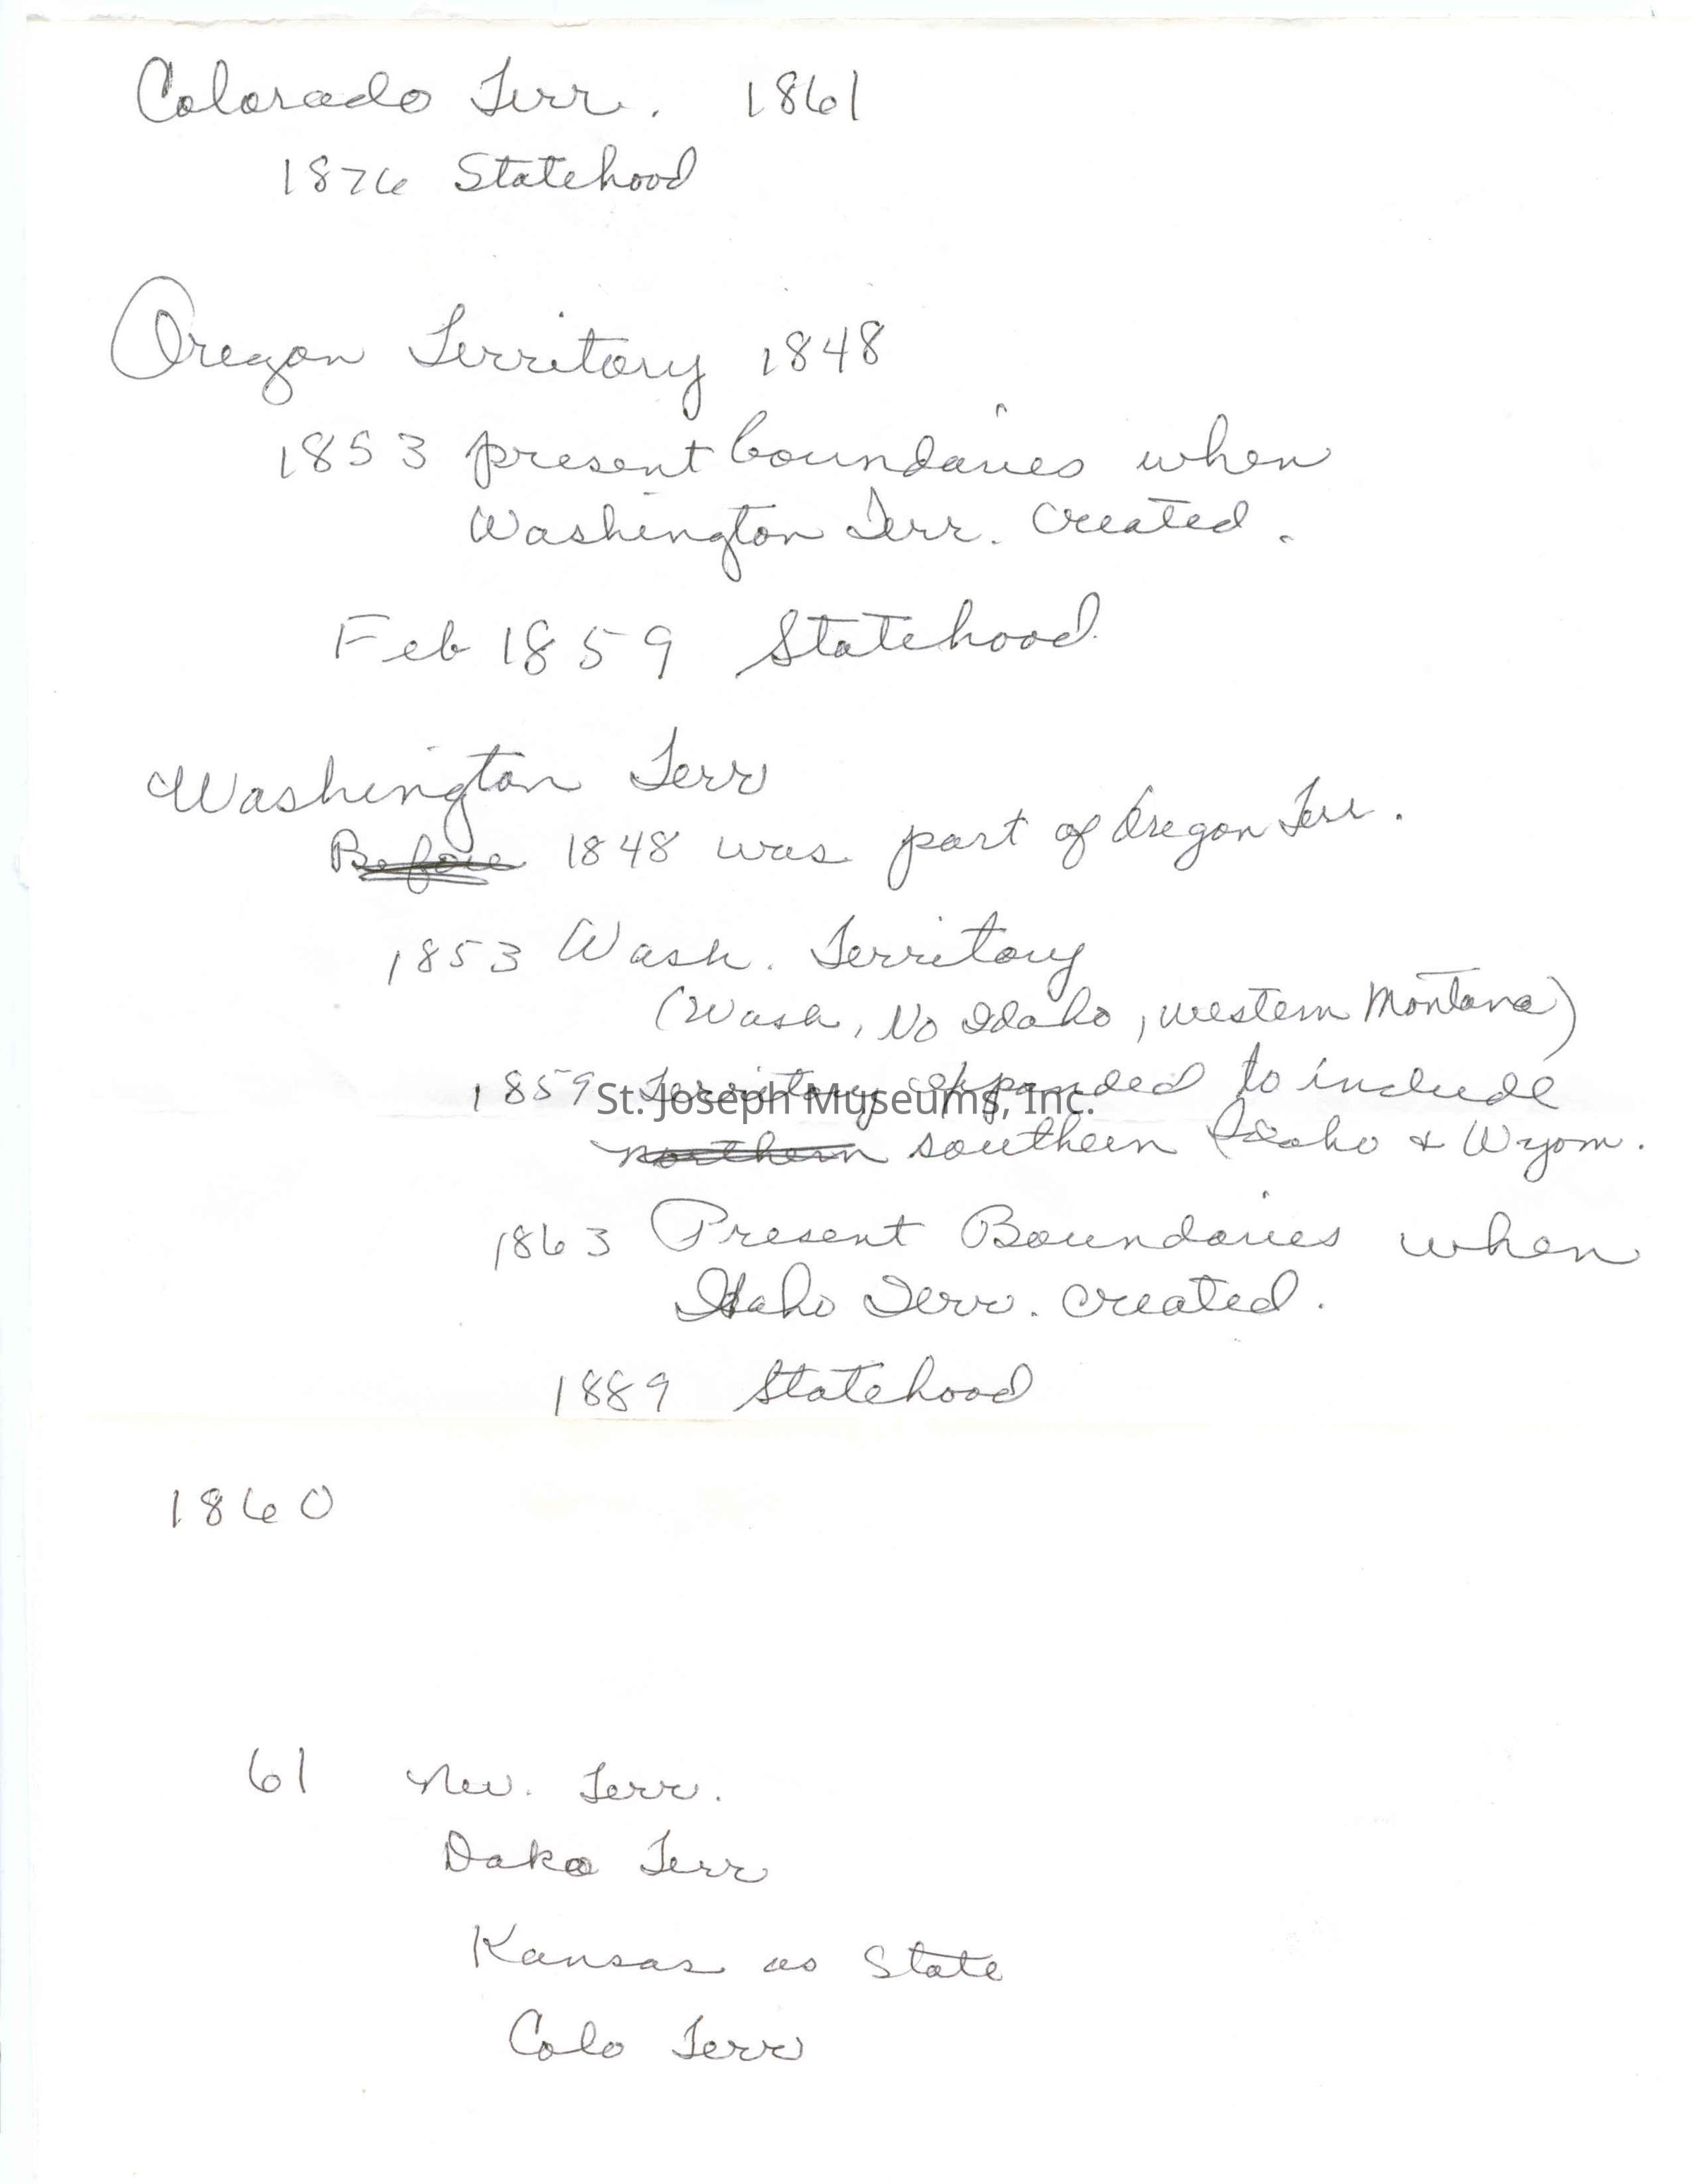 Colorado Terr. 1861
1876 Statehood
Oregon Territory 1848
1853 present boundaries when
Washington Terr. created.
Feb 1859 Statehood
Washington Terr
Before 1848 was part of Oregon Terr.
1853 Wash. Territory
(Wash, No Idaho, western Montana)
1859 Territory expanded to include
St. Joseph Museums, Inc.
northern southern Idaho & Wyom.
1863 Present Boundaries when
Idaho Terr. created.
1889 Statehood
1860
61 Nev. Terr.
Dako Terr
Kansas as State
Colo Terr